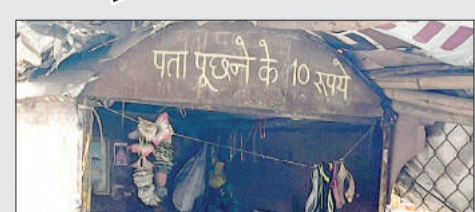 पता पूछने के 10 रुपये